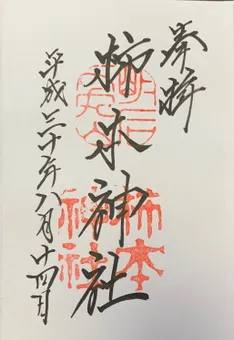 奉拝
柿本神社
平成二十六年八月廿四日
柿本
神社